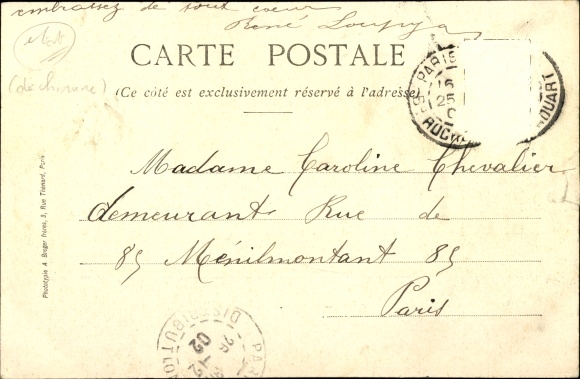 embrassez de tout coeur
René Loupy
CARTE POSTALE
(déchirure)
(Ce côté est exclusivement réservé à l'adresse)
PARIS
16
25
ROCHECHOUART
Madame Caroline Chevalier
demeurant Rue de
85 Ménilmontant 85
Paris
Phototypie A. Breger frères, 9, Rue Thénard, Paris
PARIS
DISTRIBUTION
02